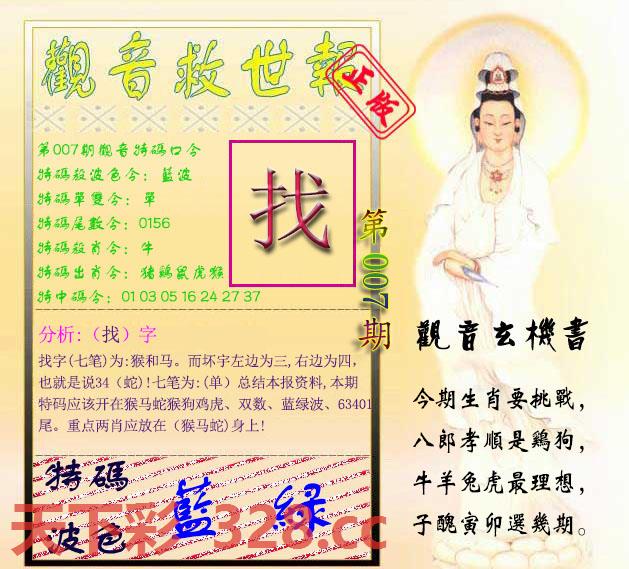 觀音救世報
正版
第007期觀音特碼口令
特碼殺波色令：藍波
特碼單雙令：單
特碼尾數令：0156
特碼殺肖令：牛
特碼出肖令：猪鷄鼠虎猴
特中碼令：01 03 05 16 24 27 37
找
第007期
分析:（找）字
找字(七笔)为:猴和马。而坏宇左边为三,右边为四，
也就是说34（蛇)!七笔为:(单）总结本报资料,本期
特码应该开在猴马蛇猴狗鸡虎、双数、蓝绿波、63401
尾。重点两肖应放在（猴马蛇)身上!
特碼
波色
藍 綠
天下彩-328.cc
觀音玄機書
今期生肖要挑戰，
八郎孝順是鷄狗，
牛羊兔虎最理想，
子醜寅卯選幾期。